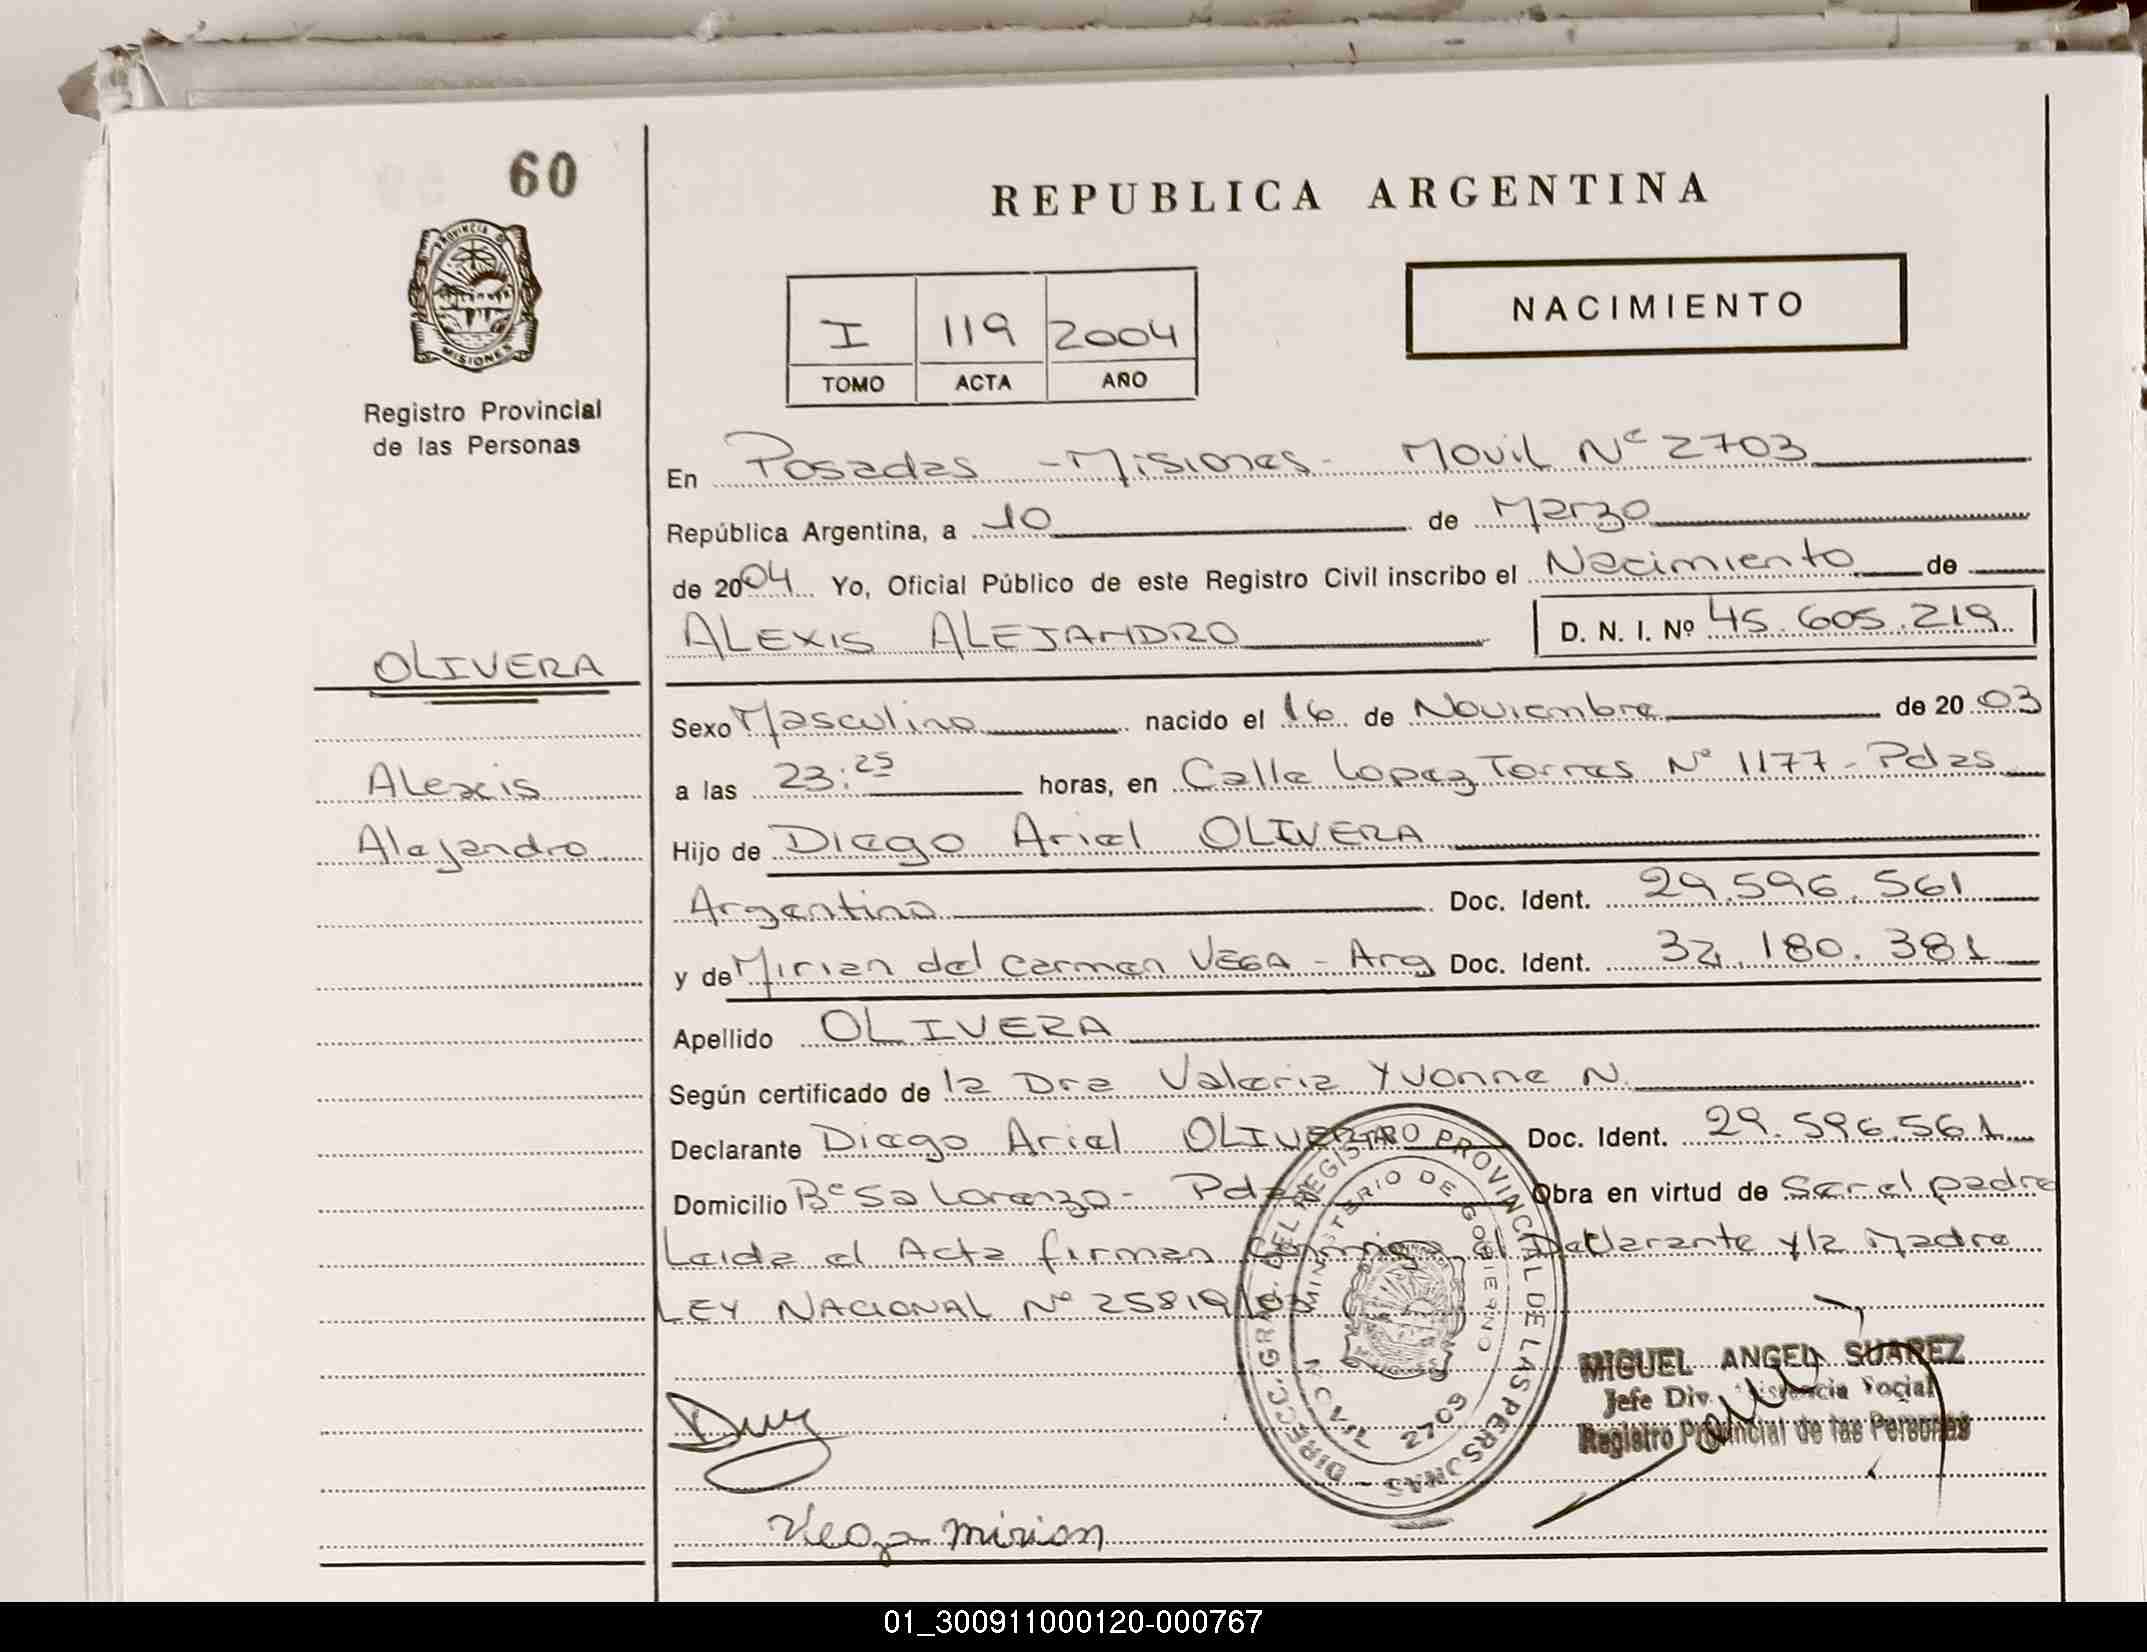 60
PROVINCIA DE
MISIONES
Registro Provincial
de las Personas
REPUBLICA ARGENTINA
I 119 2004
TOMO ACTA AÑO
NACIMIENTO
En Posadas - Misiones - Movil Nº 2703
República Argentina, a 10 de Marzo
de 2004 Yo, Oficial Público de este Registro Civil inscribo el Nacimiento de
ALEXIS ALEJANDRO D. N. I. Nº 45.605.219
OLIVERA
Alexis
Alejandro
Sexo Masculino nacido el 16 de Noviembre de 2003
a las 23:25 horas, en Calle Lopez Torres Nº 1177 - Pdas
Hijo de Diego Ariel OLIVERA
Argentino Doc. Ident. 29.596.561
y de Mirian del Carmen VEGA - Arg Doc. Ident. 34.180.381
Apellido OLIVERA
Según certificado de la Dra Valeria Yvonne N.
Declarante Diego Ariel OLIVERA Doc. Ident. 29.596.561
Domicilio Bº Sa Lorenzo - Pdas Obra en virtud de Ser el padre
Leida el Acta firman Conmigo el Declarante y la Madre
LEY NACIONAL Nº 25819/03
DIRECC. GRAL. DEL REGISTRO PROVINCIAL DE LAS PERSONAS
MINISTERIO DE GOBIERNO
2703
MIGUEL ANGEL SUAREZ
Jefe Div. Asistencia Social
Registro Provincial de las Personas
Vega Mirian
01_300911000120-000767